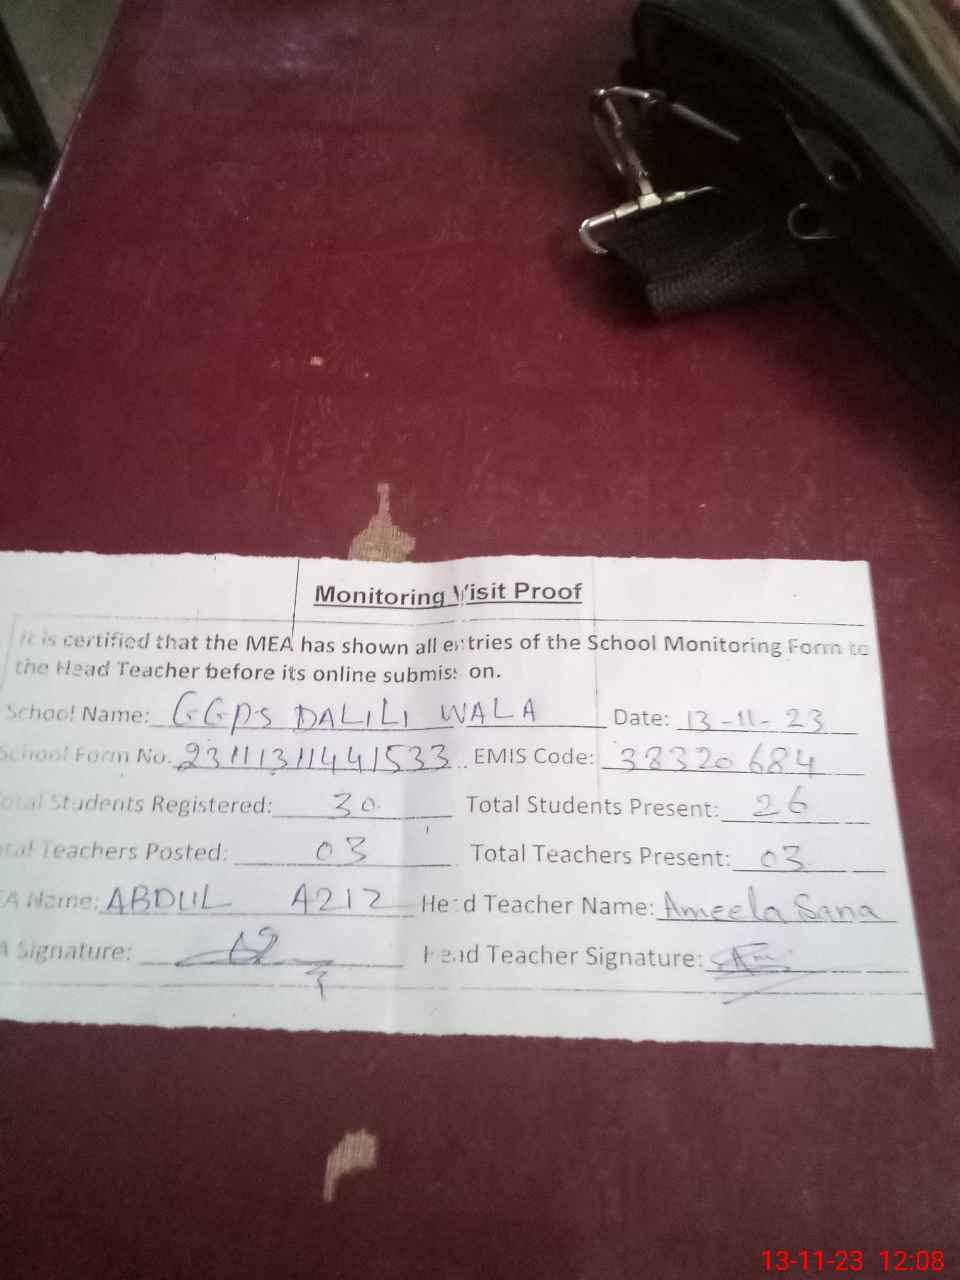 Monitoring Visit Proof
It is certified that the MEA has shown all entries of the School Monitoring Form to
the Head Teacher before its online submission.
School Name: GGPS DALILI WALA Date: 13-11-23
School Form No. 23111311441533 EMIS Code: 38320684
otal Students Registered: 30 Total Students Present: 26
tal Teachers Posted: 03 Total Teachers Present: 03
EA Name: ABDUL AZIZ Head Teacher Name: Ameela Sana
A Signature: Head Teacher Signature:
13-11-23 12:08